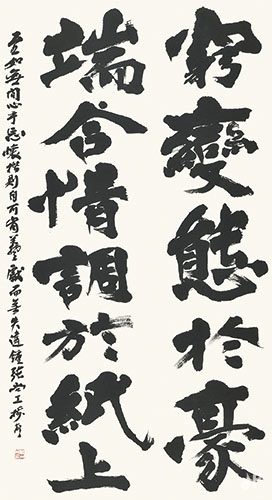 窮變態於豪
端合情調於紙上
無間心手忘懷楷則自可背羲獻而無失違鍾張尚工